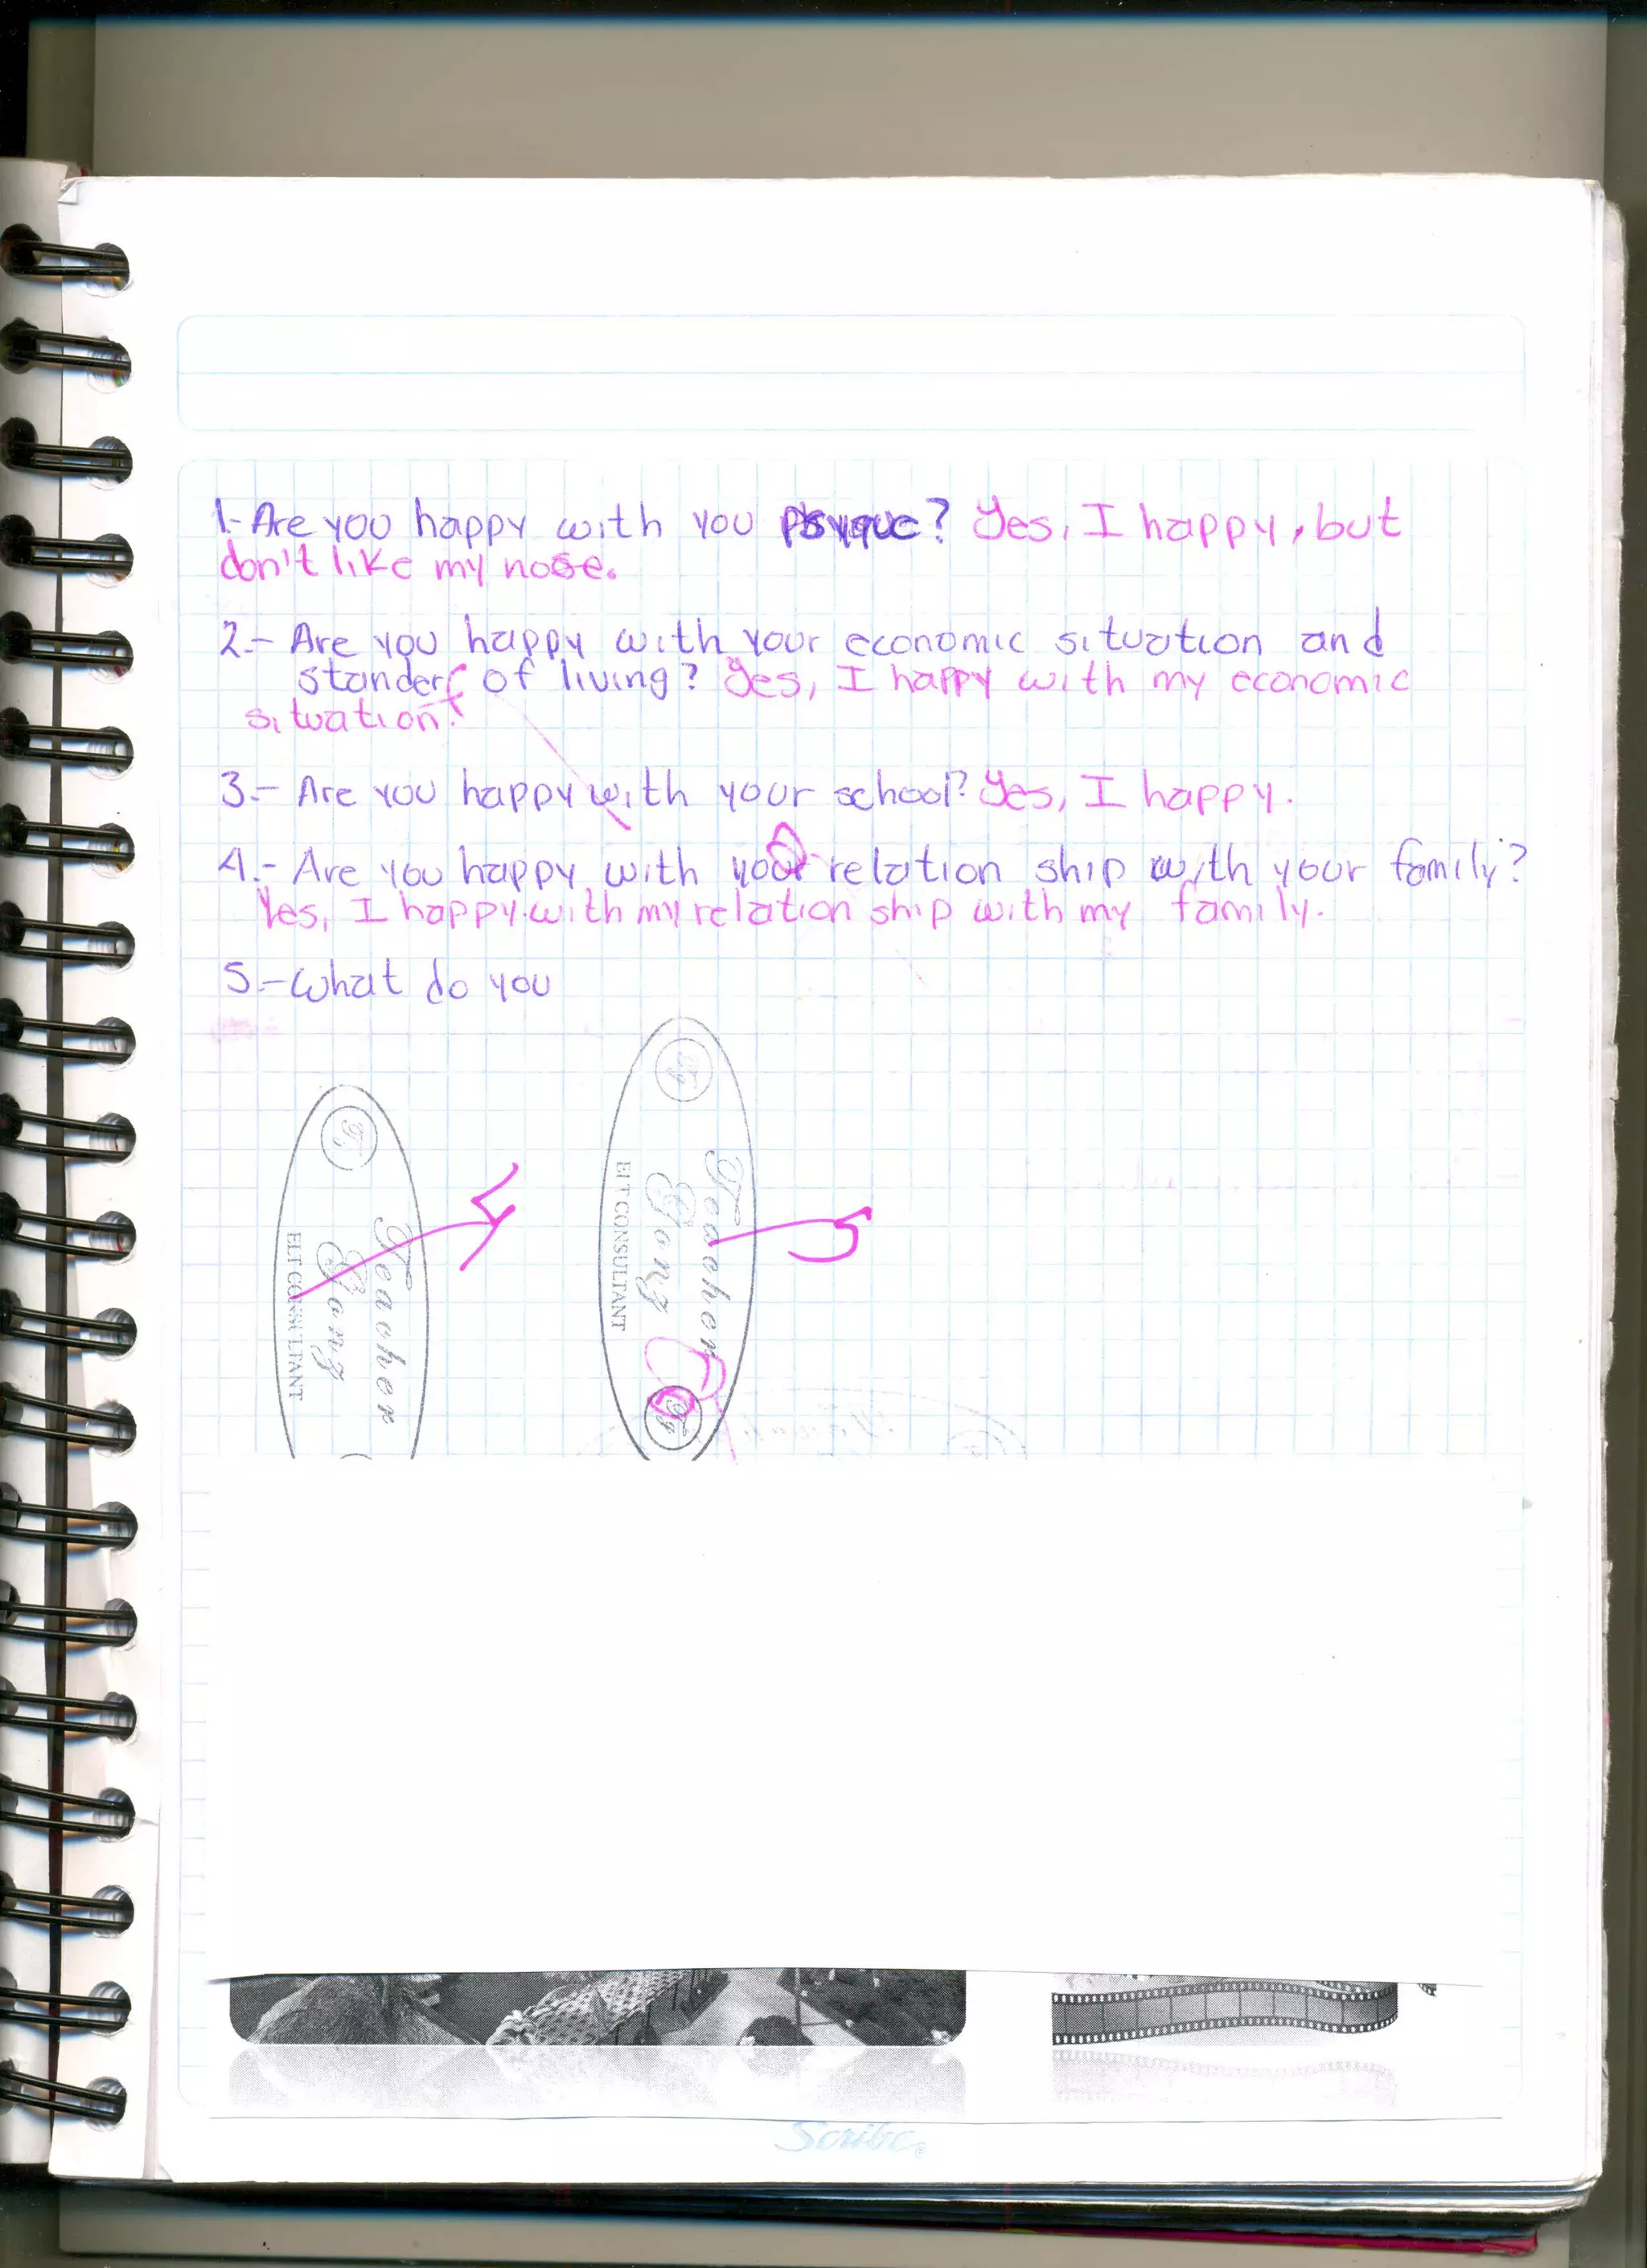 1.- Are you happy with you psyque? Yes, I happy, but
don't like my nose.
2.- Are you happy with your economic situation and
stander of living? Yes, I happy with my economic
situation.
3.- Are you happy with your school? Yes, I happy.
4.- Are you happy with your relation ship with your family?
Yes, I happy with my relation ship with my family.
5.- What do you
Teacher
Gong
ELT CONSULTANT
Teacher
Gong
ELT CONSULTANT
5
Scribe